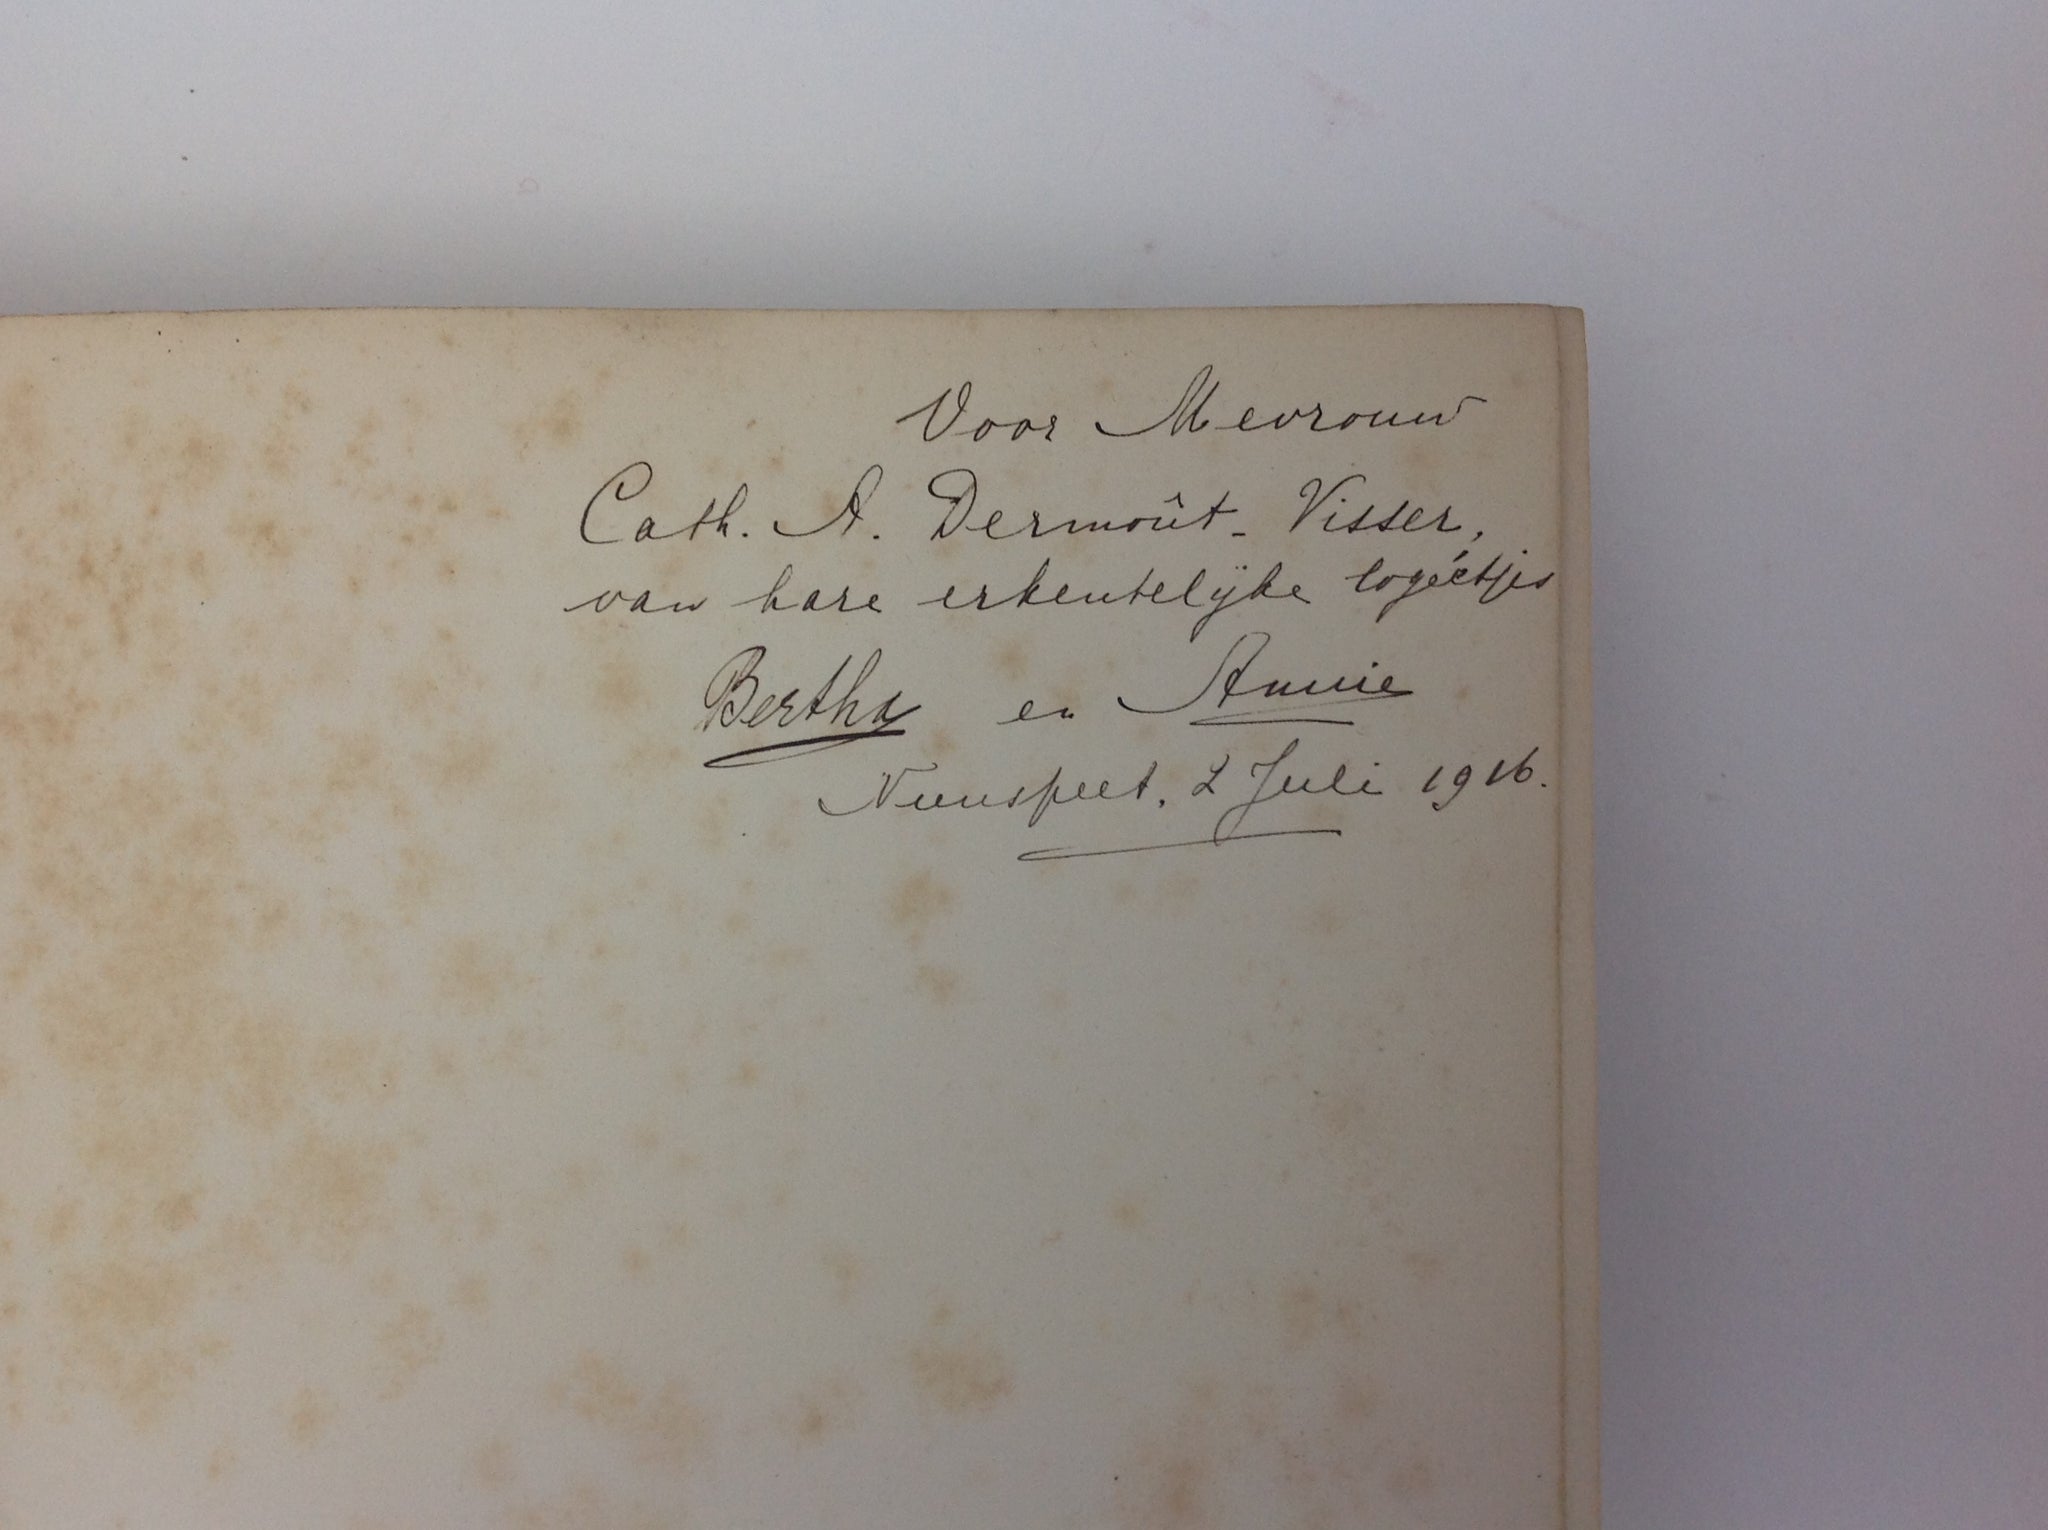 Voor Mevrouw
Cath. A. Dermoût - Visser,
van hare erkentelijke logéétjes
Bertha en Annie
Nunspeet, 2 Juli 1916.